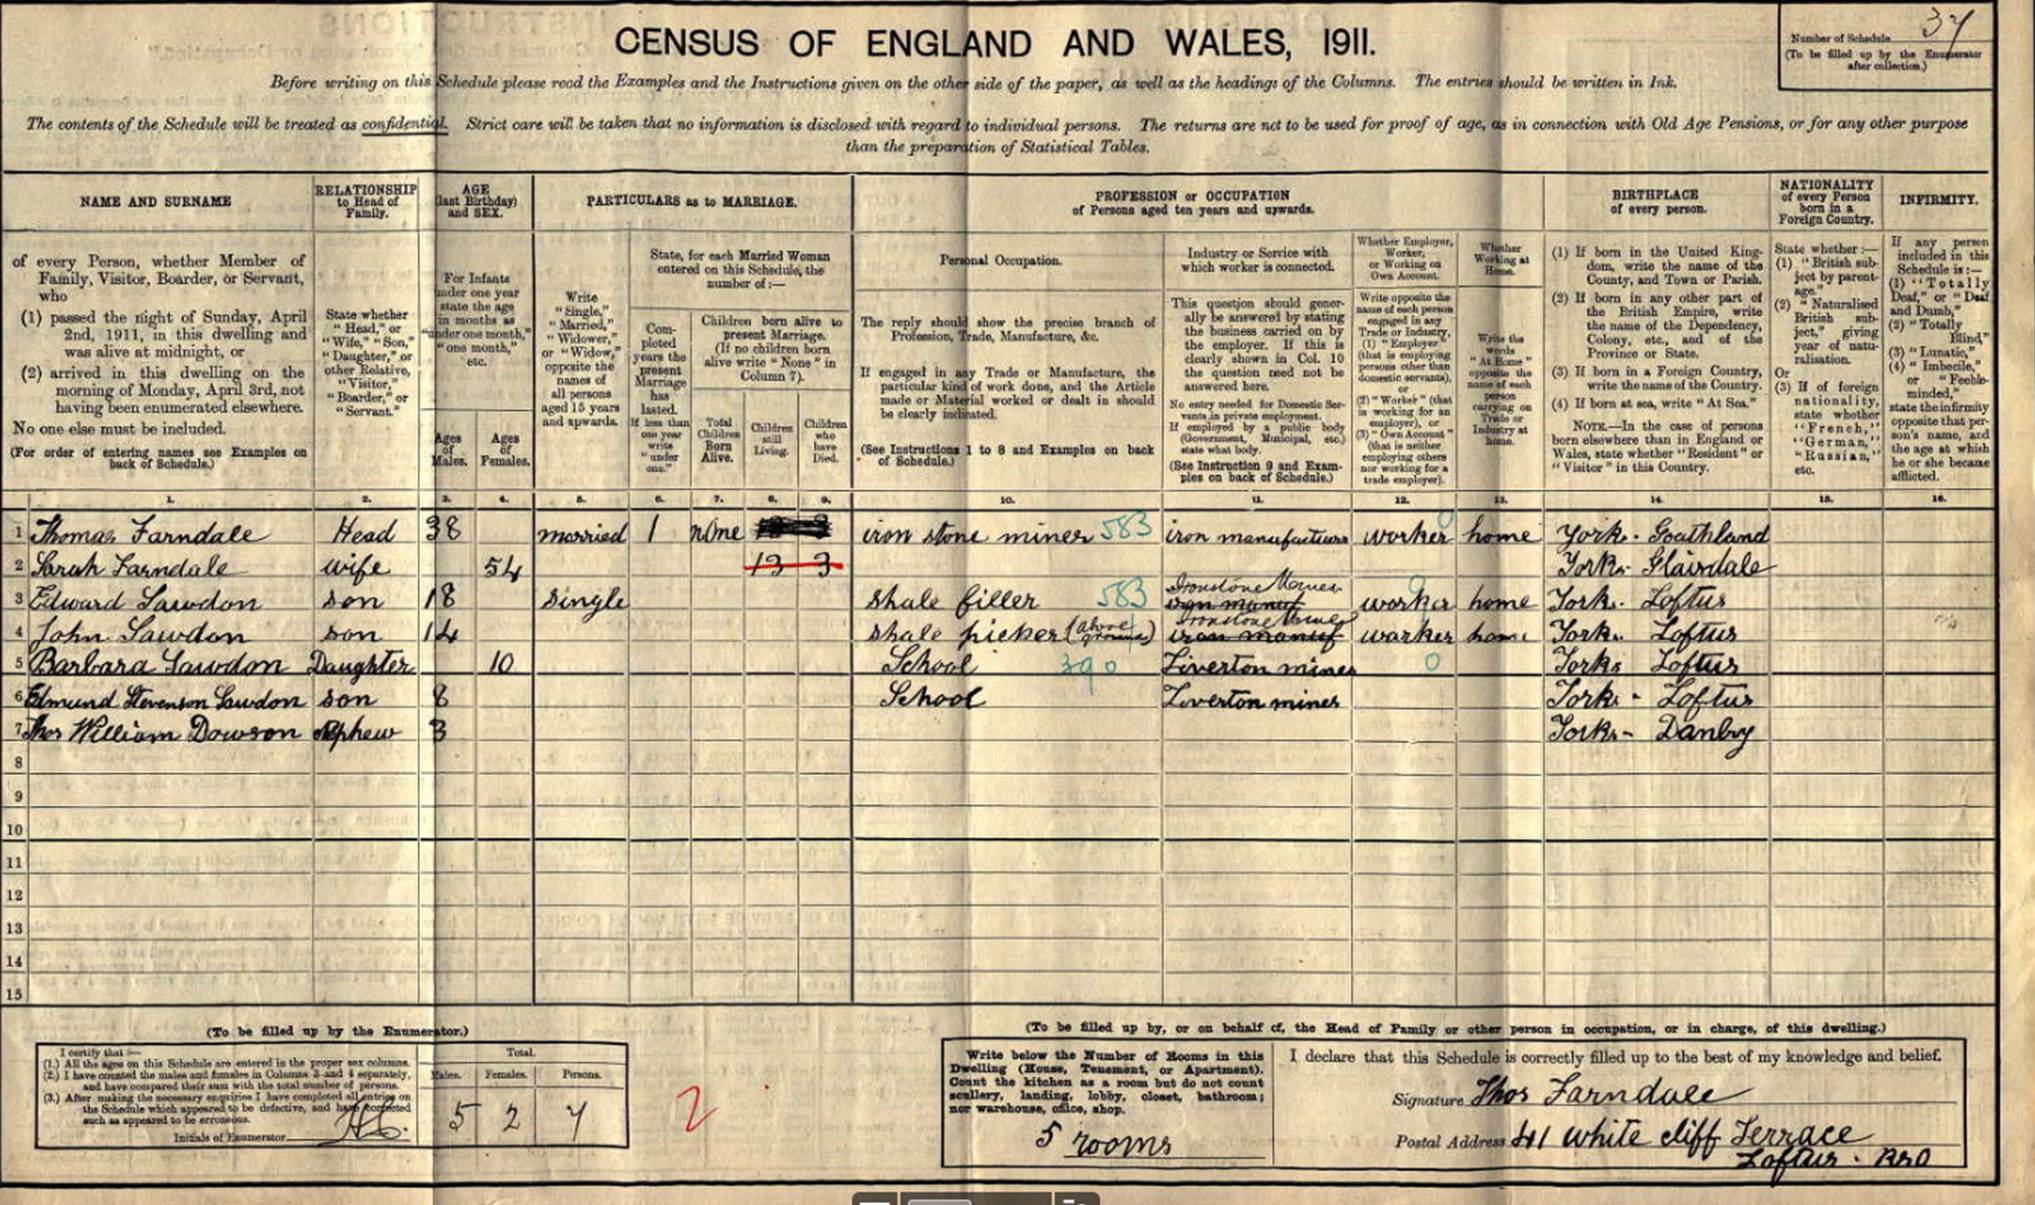 CENSUS OF ENGLAND AND WALES, 1911.
Number of Schedule 37
(To be filled up by the Enumerator after collection.)
Before writing on this Schedule please read the Examples and the Instructions given on the other side of the paper, as well as the headings of the Columns. The entries should be written in Ink.
The contents of the Schedule will be treated as confidential. Strict care will be taken that no information is disclosed with regard to individual persons. The returns are not to be used for proof of age, as in connection with Old Age Pensions, or for any other purpose
than the preparation of Statistical Tables.
NAME AND SURNAME
of every Person, whether Member of Family, Visitor, Boarder, or Servant, who
(1) passed the night of Sunday, April 2nd, 1911, in this dwelling and was alive at midnight, or
(2) arrived in this dwelling on the morning of Monday, April 3rd, not having been enumerated elsewhere.
No one else must be included.
(For order of entering names see Examples on back of Schedule.)
RELATIONSHIP to Head of Family.
State whether "Head," or "Wife," "Son," "Daughter," or other Relative, "Visitor," "Boarder," or "Servant."
AGE (last Birthday) and SEX.
For Infants under one year state the age in months as "under one month," "one month," etc.
Ages of Males.
Ages of Females.
PARTICULARS as to MARRIAGE.
Write "Single," "Married," "Widower," or "Widow," opposite the names of all persons aged 15 years and upwards.
State, for each Married Woman entered on this Schedule, the number of:—
Completed years the present Marriage has lasted. If less than one year write "under one."
Children born alive to present Marriage. (If no children born alive write "None" in Column 7).
Total Children Born Alive.
Children still Living.
Children who have Died.
PROFESSION or OCCUPATION
of Persons aged ten years and upwards.
Personal Occupation.
The reply should show the precise branch of Profession, Trade, Manufacture, &c.
If engaged in any Trade or Manufacture, the particular kind of work done, and the Article made or Material worked or dealt in should be clearly indicated.
(See Instructions 1 to 8 and Examples on back of Schedule.)
Industry or Service with which worker is connected.
This question should generally be answered by stating the business carried on by the employer. If this is clearly shown in Col. 10 the question need not be answered here.
No entry needed for Domestic Servants in private employment. If employed by a public body (Government, Municipal, etc.) state what body.
(See Instruction 9 and Examples on back of Schedule.)
Whether Employer, Worker, or Working on Own Account.
Write opposite the name of each person engaged in any Trade or Industry, (1) "Employer" (that is employing persons other than domestic servants), or (2) "Worker" (that is working for an employer), or (3) "Own Account" (that is neither employing others nor working for a trade employer).
Whether Working at Home.
Write the words "At Home" opposite the name of each person carrying on Trade or Industry at home.
BIRTHPLACE of every person.
(1) If born in the United Kingdom, write the name of the County, and Town or Parish.
(2) If born in any other part of the British Empire, write the name of the Dependency, Colony, etc., and of the Province or State.
(3) If born in a Foreign Country, write the name of the Country.
(4) If born at sea, write "At Sea."
NOTE.—In the case of persons born elsewhere than in England or Wales, state whether "Resident" or "Visitor" in this Country.
NATIONALITY of every Person born in a Foreign Country.
State whether:—
(1) "British subject by parentage."
(2) "Naturalised British subject," giving year of naturalisation.
Or
(3) If of foreign nationality, state whether "French," "German," "Russian," etc.
INFIRMITY.
If any person included in this Schedule is:—
(1) "Totally Deaf," or "Deaf and Dumb,"
(2) "Totally Blind,"
(3) "Lunatic,"
(4) "Imbecile," or "Feeble-minded,"
state the infirmity opposite that person's name, and the age at which he or she became afflicted.
1. 2. 3. 4. 5. 6. 7. 8. 9. 10. 11. 12. 13. 14. 15. 16.
1 Thomas Farndale Head 38 married 1 none iron stone miner 583 iron manufacturers worker 0 home York. Goathland
2 Sarah Farndale wife 54 13 3 Yorks. Glaisdale
3 Edward Lawdon son 18 single shale filler 583 Ironstone Mines iron manuf worker 9 home York. Loftus
4 John Lawdon son 14 shale picker (above ground) Ironstone Mines iron manuf worker home Yorks. Loftus
5 Barbara Lawdon Daughter 10 School 390 Liverton mines 0 Yorks Loftus
6 Edmund Stevenson Lawdon son 8 School Liverton mines Yorks - Loftus
7 Thos William Dowson Nephew 3 Yorks - Danby
8
9
10
11
12
13
14
15
(To be filled up by the Enumerator.)
I certify that:—
(1.) All the ages on this Schedule are entered in the proper sex columns.
(2.) I have counted the males and females in Columns 3 and 4 separately, and have compared their sum with the total number of persons.
(3.) After making the necessary enquiries I have completed all entries on the Schedule which appeared to be defective, and have corrected such as appeared to be erroneous.
Initials of Enumerator
Total.
Males. Females. Persons.
5 2 7
2
(To be filled up by, or on behalf of, the Head of Family or other person in occupation, or in charge, of this dwelling.)
Write below the Number of Rooms in this Dwelling (House, Tenement, or Apartment). Count the kitchen as a room but do not count scullery, landing, lobby, closet, bathroom; nor warehouse, office, shop.
5 rooms
I declare that this Schedule is correctly filled up to the best of my knowledge and belief.
Signature Thos Farndale
Postal Address 41 white cliff Terrace
Loftus. RSO